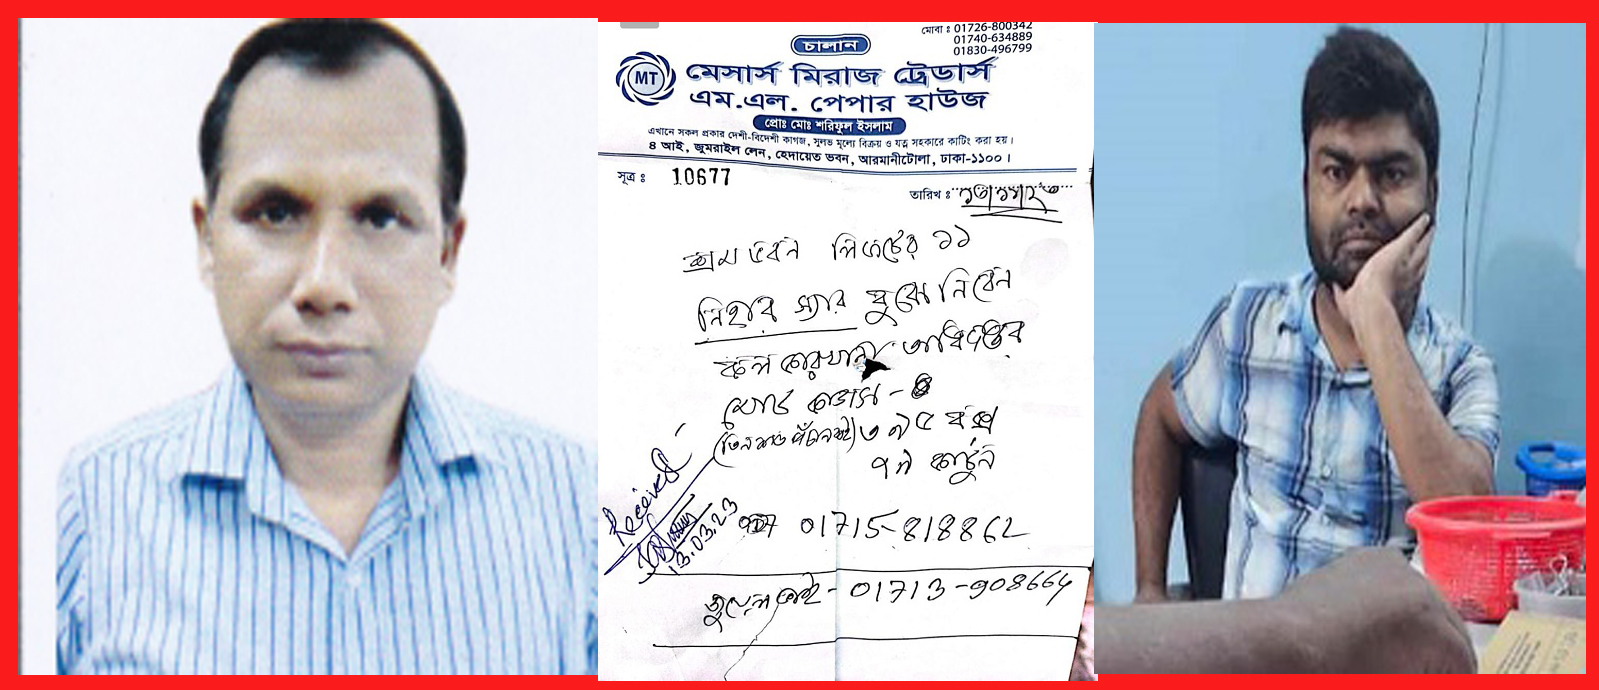 মোবা : 01726-800342
01740-634889
01830-496799
চালান
MT
মেসার্স মিরাজ ট্রেডার্স
এম.এল. পেপার হাউজ
প্রোঃ মোঃ শরিফুল ইসলাম
এখানে সকল প্রকার দেশী-বিদেশী কাগজ, সুলভ মূল্যে বিক্রয় ও যত্ন সহকারে কাটিং করা হয়।
৪ আই, জুমরাইল লেন, হেদায়েত ভবন, আরমানীটোলা, ঢাকা-১১০০।
সূত্র : 10677
তারিখ :
শ্রম ভবন লিফটের ১১
নিহার স্যার বুঝে নিবেন
কল কারখানা অধিদপ্তর
৩৯৫
Received
13.03.23
01715-818862
জুয়েল ভাই - 01713-908664